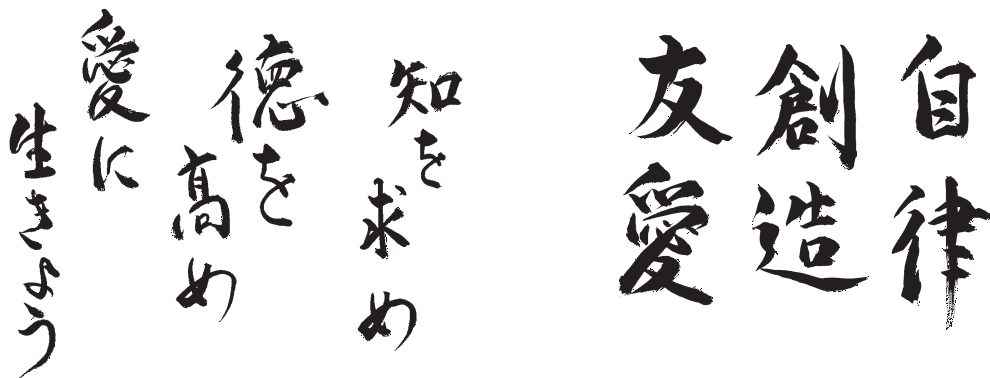 自律
創造
友愛
知を求め
徳を高め
愛に
生きよう